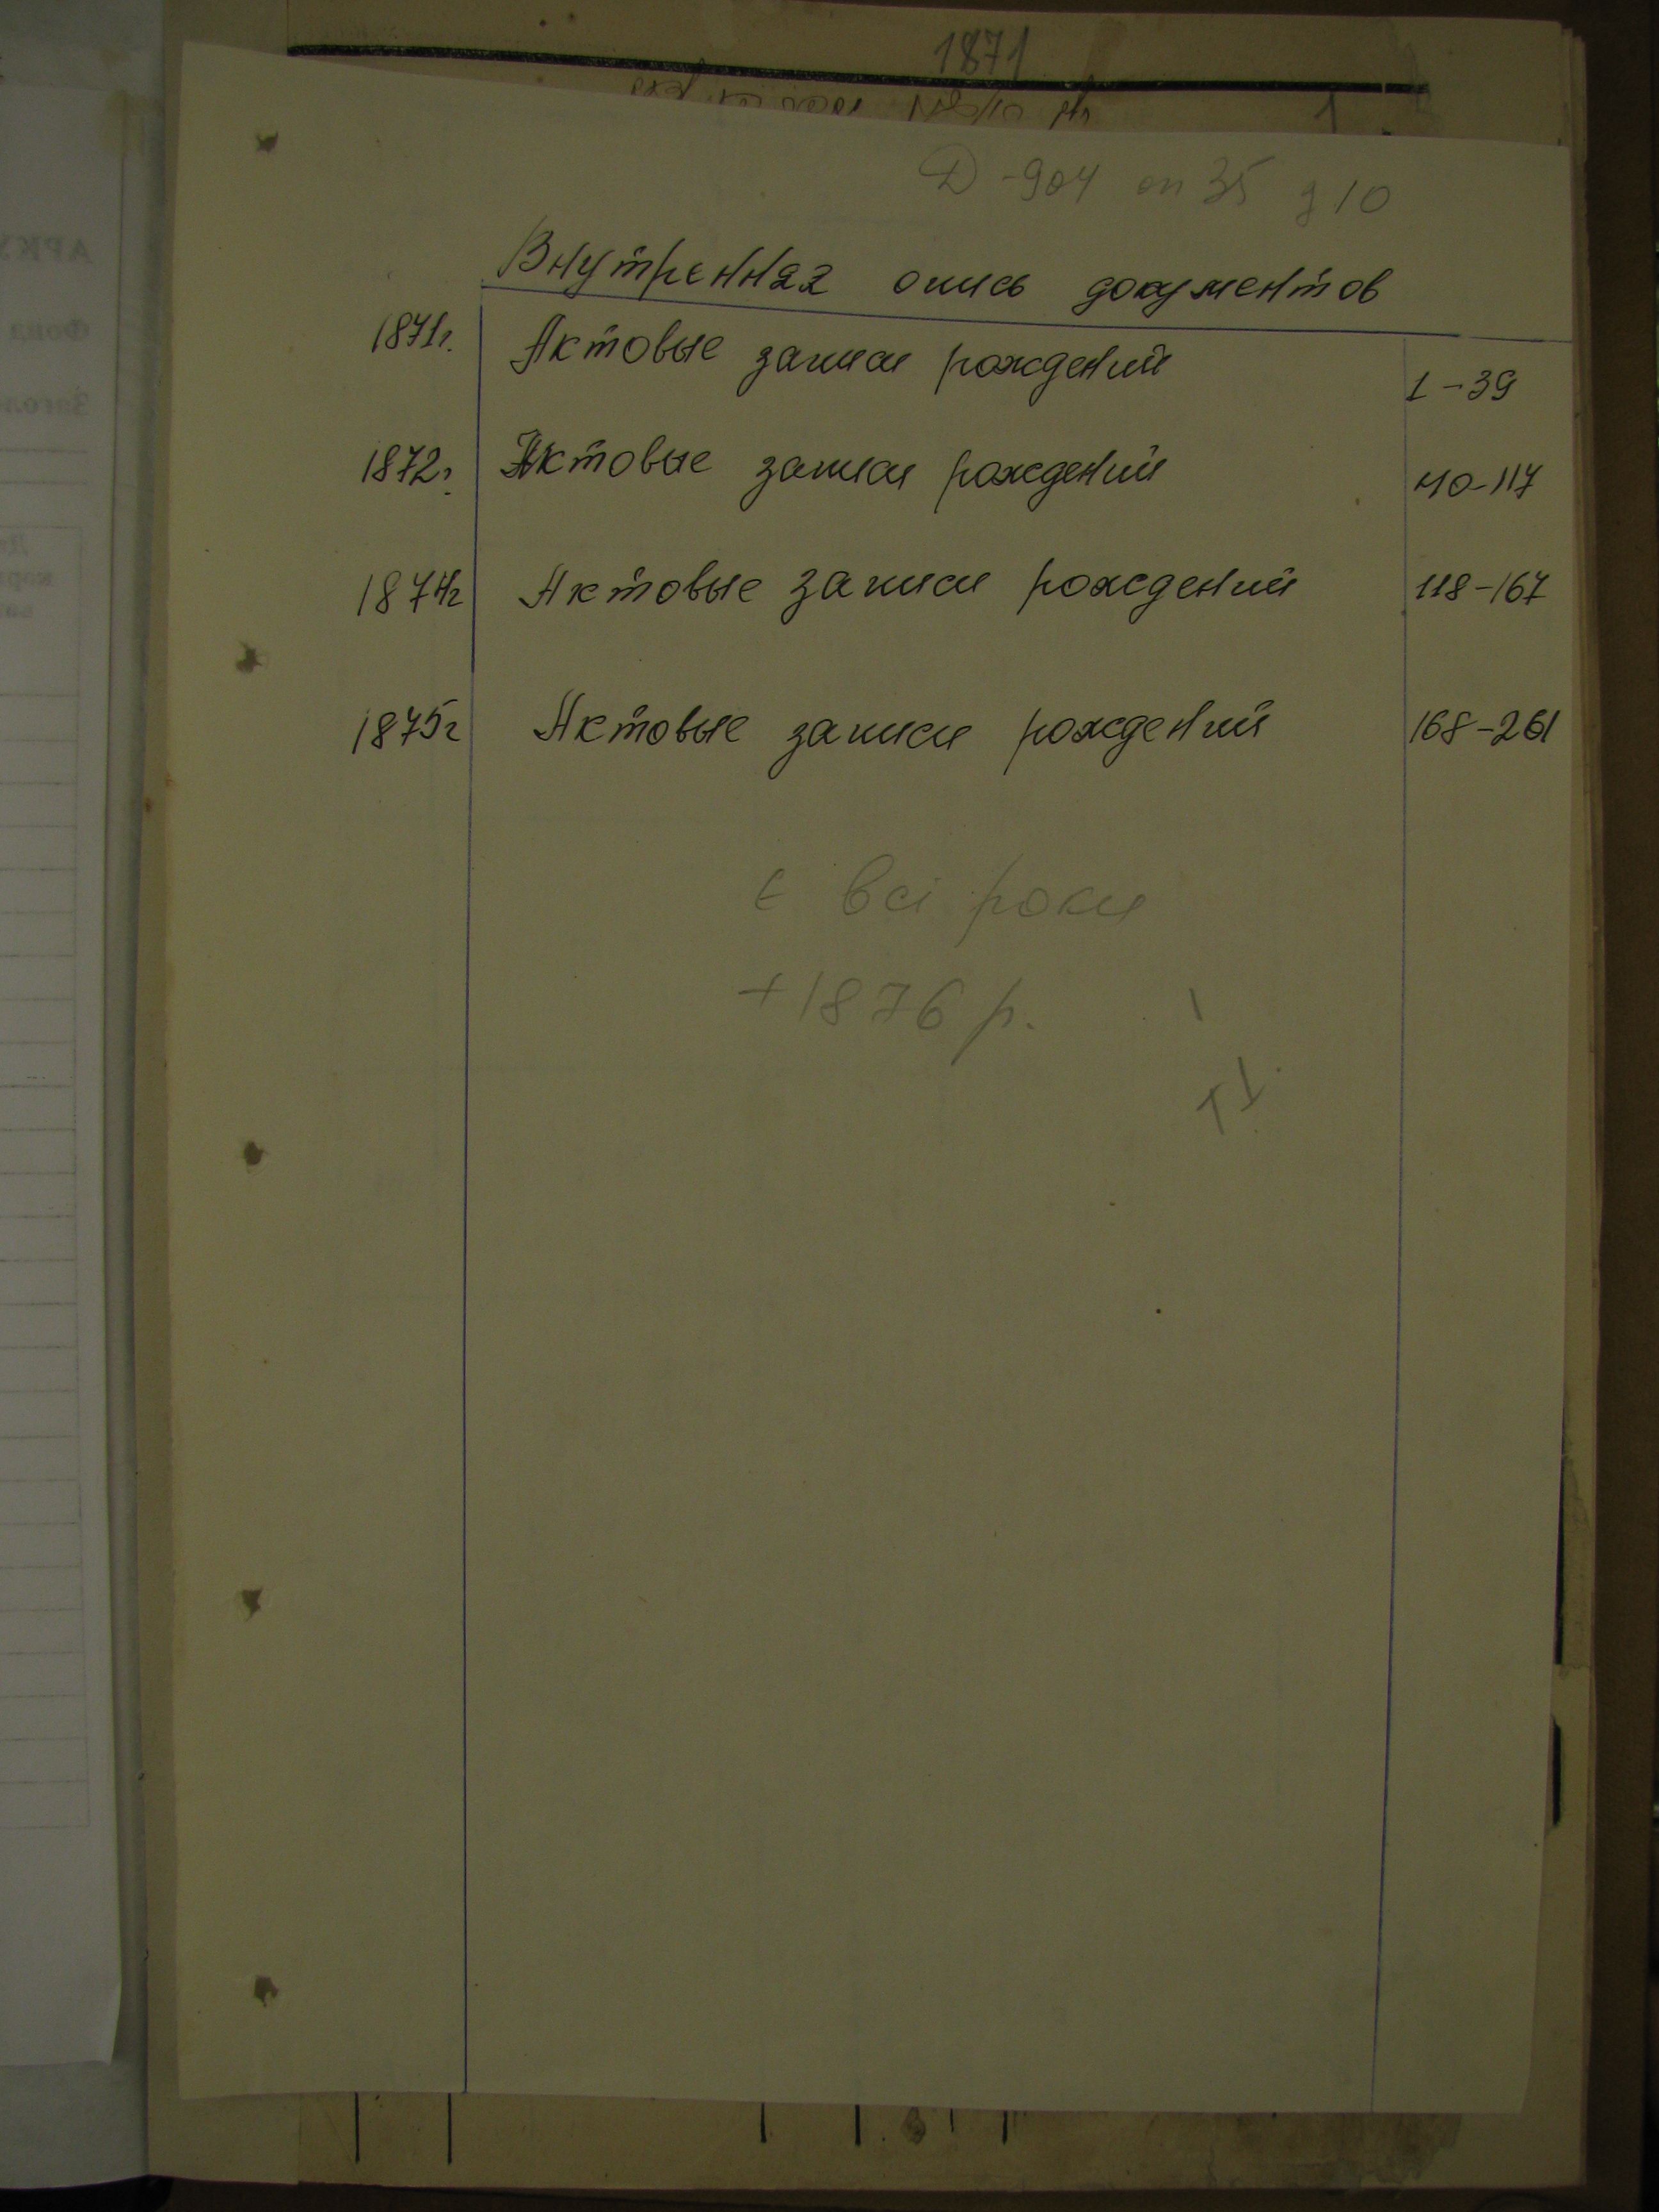 1871
1
Д-904 оп 35 д 10
Внутренная опись документов
1871г. Актовые записи рождений 1-39
1872г. Актовые записи рождений 40-117
1874г Актовые записи рождений 118-167
1875г Актовые записи рождений 168-261
Є всі роки
+1876 р.